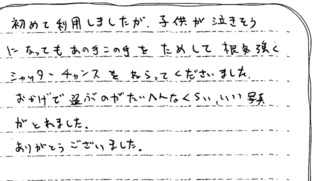 初めて利用しましたが、子供が泣きそう
になってもあのきこの手をためして根気強く
シャッターチャンスをねらってくださいました。
おかげで選ぶのがたいへんなくらい、いい写真
がとれました。
ありがとうございました。